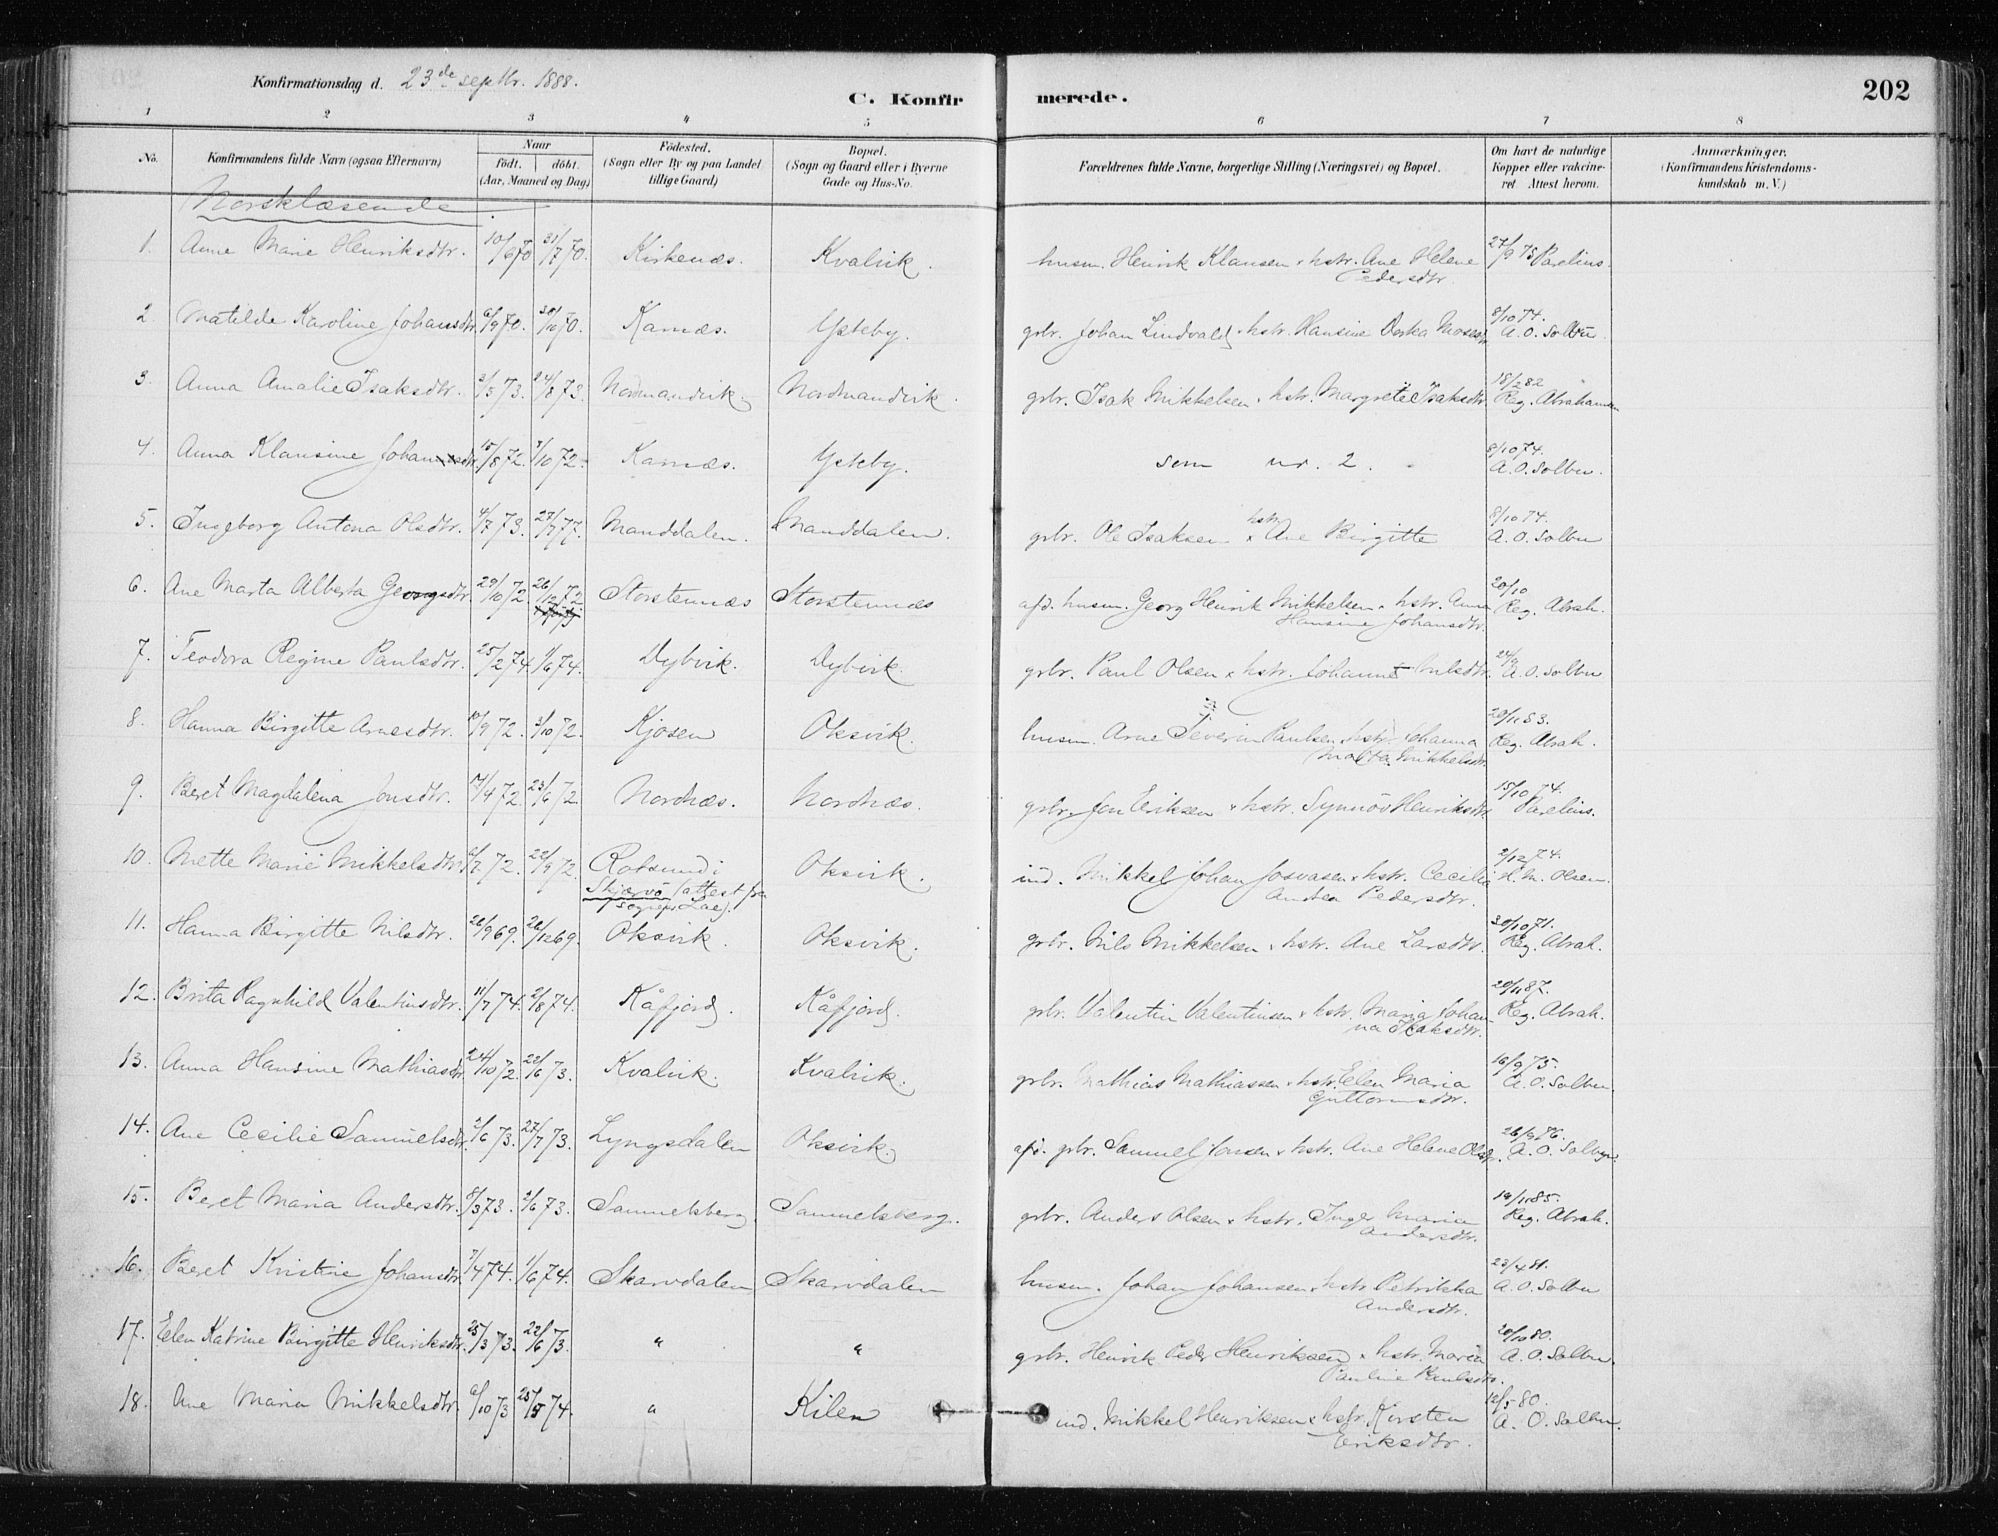 Konfirmationsdag d. 23de septbr. 1888.
C. Konfirmerede.
202
1 2 3 4 5 6 7 8
No.
Konfirmandens fulde Navn (ogsaa Efternavn)
Naar
födt. döbt.
(Aar, Maaned og Dag)
Födested.
(Sogn eller By og paa Landet
tillige Gaard)
Bopæl.
(Sogn og Gaard eller i Byerne
Gade og Hus-No.
Forældrenes fulde Navne, borgerlige Stilling (Næringsvei) og Bopæl.
Om havt de naturlige
Kopper eller vakcine-
ret Attest herom.
Anmærkninger.
(Konfirmandens Kristendoms-
kundskab m. V.)
Norsklæsende
1. Anne Marie Henriksdtr. 10/6 70 31/7 70. Kirkenæs. Kvalvik. husm. Henrik Klausen & hstr. Ane Helene 27/9 75 Parelius.
Pedersdtr.
2. Matilde Karoline Johansdtr. 6/9 70. 30/10 70. Karnæs. Ysteby. grbr. Johan Lindvald & hstr. Hansine Dorka Mosesdtr 8/10 74. A. O. Solbu
3. Anna Amalie Isaksdtr. 3/5 73. 24/8 73. Nordmandvik. Nordmandvik. grbr. Isak Mikkelsen & hstr. Margrete Isaksdtr. 18/2 82 Reg. Abrahamsen
4. Anna Klausine Johansdtr. 15/8 72. 8/10 72. Karnæs. Ysteby. som nr. 2. 8/10 74. A. O. Solbu.
5. Ingeborg Antona Olsdtr. 4/7 73. 27/7 77. Manddalen. Manddalen. grbr. Ole Isaksen & hstr. Ane Birgitte 8/10 74. A. O. Solbu
6. Ane Marta Alberta Georgsdtr. 29/10 72. 26/12 72 Storstennæs Storstennæs afd. husm. Georg Henrik Mikkelsen & hstr. Anna 20/10 Reg. Abrah.
Hansine Johansdtr.
7. Teodora Regine Paulsdtr. 25/2 74. 1/6 74. Dybvik. Dybvik. grbr. Paul Olsen & hstr. Johanne Nilsdtr. 24/9 A. O. Solbu
8. Hanna Birgitte Arnesdtr. 10/9 72. 3/10 72. Kjosen Oksvik. husm. Arne Severin Paulsen & hstr. Johanna 20/11 83. Reg. Abrah.
Marta Mikkelsdtr.
9. Beret Magdalena Jonsdtr. 17/4 72. 23/6 72. Nordnæs. Nordnæs. grbr. Jon Eriksen & hstr. Synnöv Henriksdtr. 15/10 74. Parelius.
10. Mette Marie Mikkelsdtr. 6/7 72. 22/9 72. Rotsund i Oksvik. ind. Mikkel Johan Josvasen & hstr. Cecilia 2/12 74. H. M. Olsen.
Skjærvö (attest fra Andrea Pedersdtr.
sognepr. Lae).
11. Hanna Birgitte Nilsdtr. 26/9 69. 26/12 69. Oksvik. Oksvik. grbr. Nils Mikkelsen & hstr. Ane Larsdtr. 30/10 71. Reg. Abrah.
12. Brita Ragnhild Valentinsdtr. 11/7 74. 2/8 74. Kåfjord. Kåfjord. grbr. Valentin Valentinsen & hstr. Maria Johan- 20/11 87. Reg. Abrah.
na Isaksdtr.
13. Anna Hansine Mathiasdtr. 24/10 72. 22/6 73. Kvalvik. Kvalvik. grbr. Mathias Mathiassen & hstr. Elen Maria 16/9 75. A. O. Solbu
Guttormsdtr.
14. Ane Cecilie Samuelsdtr. 2/6 73. 27/7 73. Lyngsdalen Oksvik. afd. grbr. Samuel Jonsen & hstr. Ane Helene Olsdtr. 26/9 76. A. O. Solbu.
15. Beret Maria Andersdtr. 8/3 73. 2/6 73. Samuelsberg. Samuelsberg. grbr. Anders Olsen & hstr. Inger Maria 19/11 85. Reg. Abrah.
Andersdtr.
16. Beret Kristine Johansdtr. 7/4 74. 1/6 74. Skarvdalen Skarvdalen husm. Johan Johansen & hstr. Petrikka 23/4 81. A. O. Solbu
Andersdtr.
17. Elen Katrine Birgitte Henriksdtr. 25/3 73. 22/6 73. " " grbr. Henrik Peder Henriksen & hstr. Maria 20/10 80. A. O. Solbu.
Pauline Paulsdtr.
18. Ane Maria Mikkelsdtr. 6/10 73 25/5 74. " Kilen ind. Mikkel Henriksen & hstr. Kirsten 12/5 80. A. O. Solbu.
Eriksdtr.